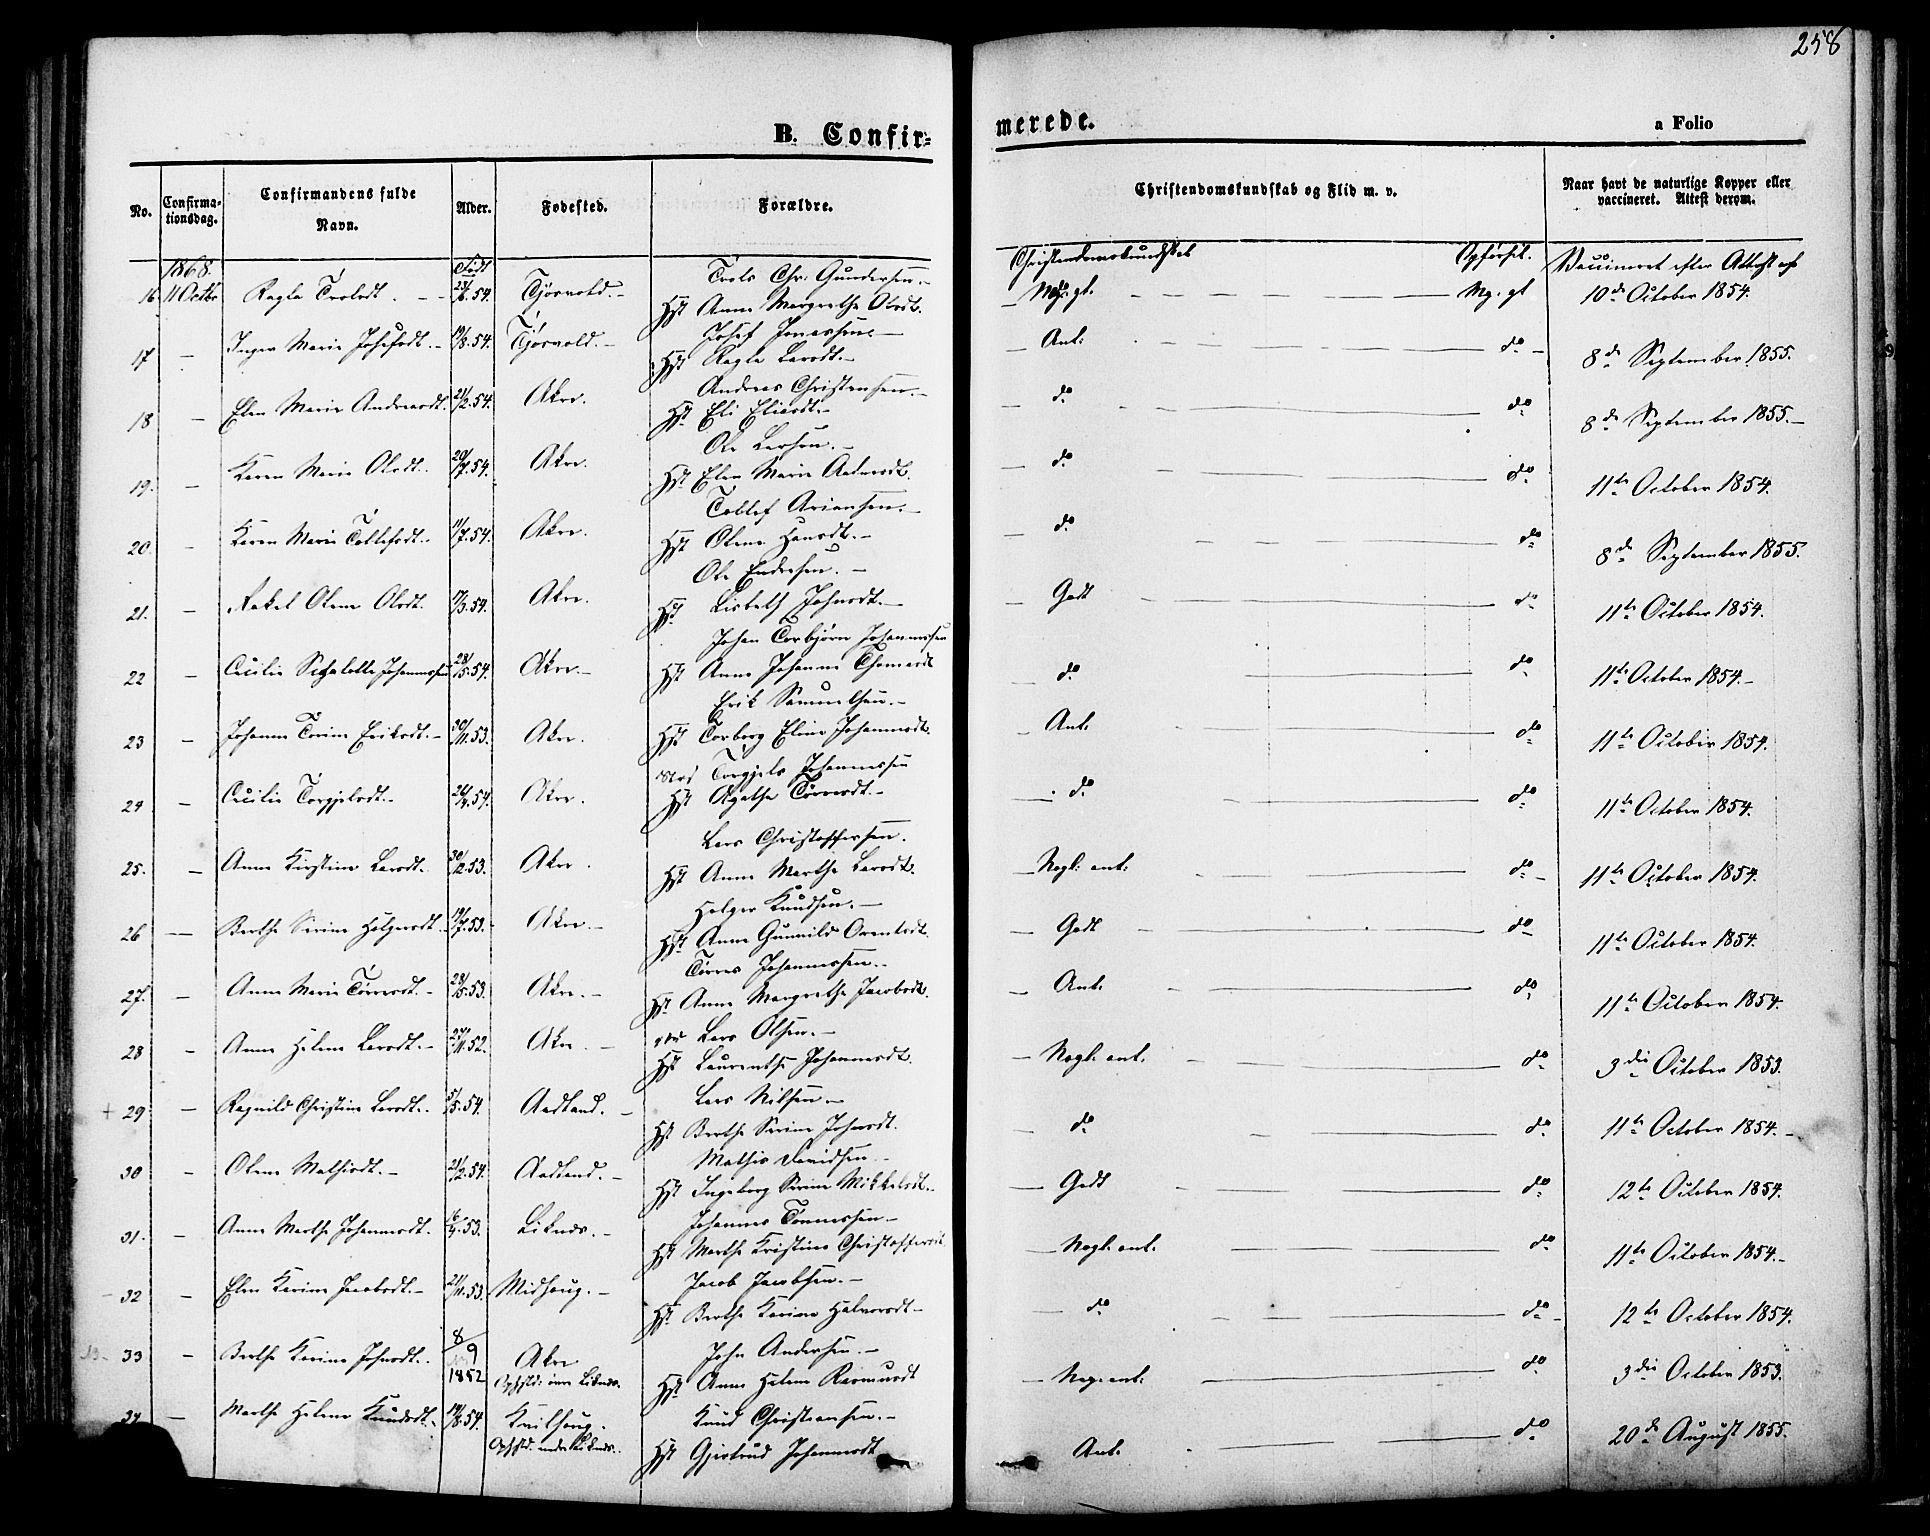 258
B. Confirmerede.
a Folio
No. Confirmationsdag. Confirmandens fulde Navn. Alder. Fødested. Forældre. Christendomskundskab og Flid m. v. Naar havt de naturlige Kopper eller vaccineret. Attest derom.
1868. Født Christendomskundskab Opførsel. Vaccineret efter Attest af
16 11 Octbr Ragla Trolsdt. 23/6.54. Tjøsvold. Trols Chr. Gundersen Hst Anne Margrethe Olsdt. Mg. gt. Mg. gt 10de October 1854.
17 Inger Marie Josefsdt. 19/8.54. Tjøsvold. Josef Jonassen Hst Ragla Larsdt. Ant. do 8de September 1855.
18 Elen Marie Andreasdt. 21/2.54. Akre. Andreas Christensen Hst. Eli Eliasdt. do do 8de September 1855.
19. Karen Marie Olsdt. 20/7.54. Akre. Ole Larsen. Hst. Elen Marie do do 11te October 1854.
20. Karen Marie Tollefsdt. 11/7.54. Akre. Tollef Hst Olene Hansdt. do do 8de September 1855.
21. Rakel Olene Olsdt. 7/3.54. Akre. Ole Endresen. Hst. Lisbeth Johnsdt. Godt do 11te October 1854.
22 Cecilie Johannessen 28/5.54. Akre. Johan Torbjørn Johannessen Hst Anne Johanne Thomasdt do do 11te October 1854.
23 Johanne Torine Eriksdt. 30/11.53. Akre. Erik Samuelsen. Hst Torborg Eline Johannesdt. Ant. do 11te October 1854.
24 Cecilie Torgjelsdt. 26/4.54. Akre. Torgjels Johannessen Hst Agathe Tørresdt. do do 11te October 1854.
25. Anne Kirstine Larsdt. 30/12.53. Akre. Lars Christoffersen. Hst Anne Marthe Larsdt. Nogl. ant. do 11te October 1854.
26 Berthe Serine Holgersdt. 19/7.53. Akre. Holger Knudsen. Hst. Anne Gunnild Godt do 11te October 1854.
27. Anne Marie Tørresdt. 28/5.53. Akre. Tørres Johannessen. Hst. Anne Margrethe Jacobsdt. Ant. do 11te October 1854.
28 Anne Helene Larsdt. 27/11.52. Akre. Lars Olsen. Hst Laurentse Johannesdt. Nogl. ant. do 3die October 1853.
29 Ragnild Christine Larsdt. 5/5.54. Aadland. Lars Nilsen. Hst Berthe Serine Johnsdt. do do 11te October 1854.
30 Olene Mathisdt. 21/2.54. Aadland. Mathis Davidsen. Hst Ingeborg Serine Mikkelsdt. Godt do 12te October 1854.
31. Anne Marthe Johannesdt. 16/9.53. Liknes. Johannes Tønnessen Hst Marthe Kristine Christoffersdt. Nogl. ant. do 11te October 1854.
32 Elen Karine Jacobsdt. 21/11.53. Midhoug. Jacob Jacobsen. Hst. Berthe Karine Halvorsdt do do 12te October 1854.
33 Berthe Karine Johnsdt. 8/9 1852 Akre Opholdst. inn Liknes. John Andersen. Hst. Anne Helene Rasmusdt Nog. ant. do 3die October 1853.
34 Marthe Helene Knudsdt. 19/8.54. Kvilhoug. Knud Christiansen. Hst Gjertrud Johannesdt Ant. do 20de August 1855.